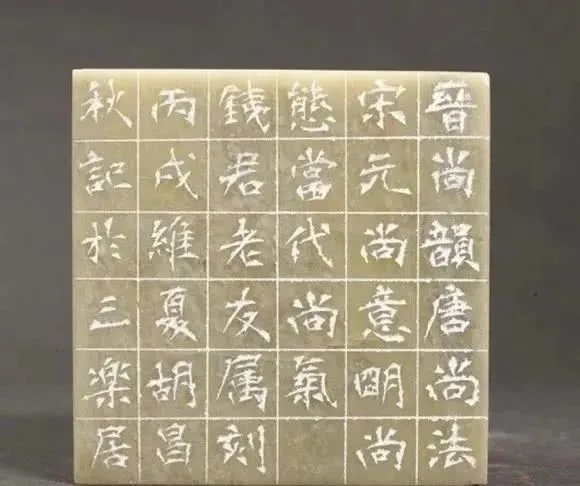 晉尚韻唐尚法
宋元尚意明尚
態當代尚氣
錢君老友属刻
丙戌維夏胡昌
秋記於三楽居